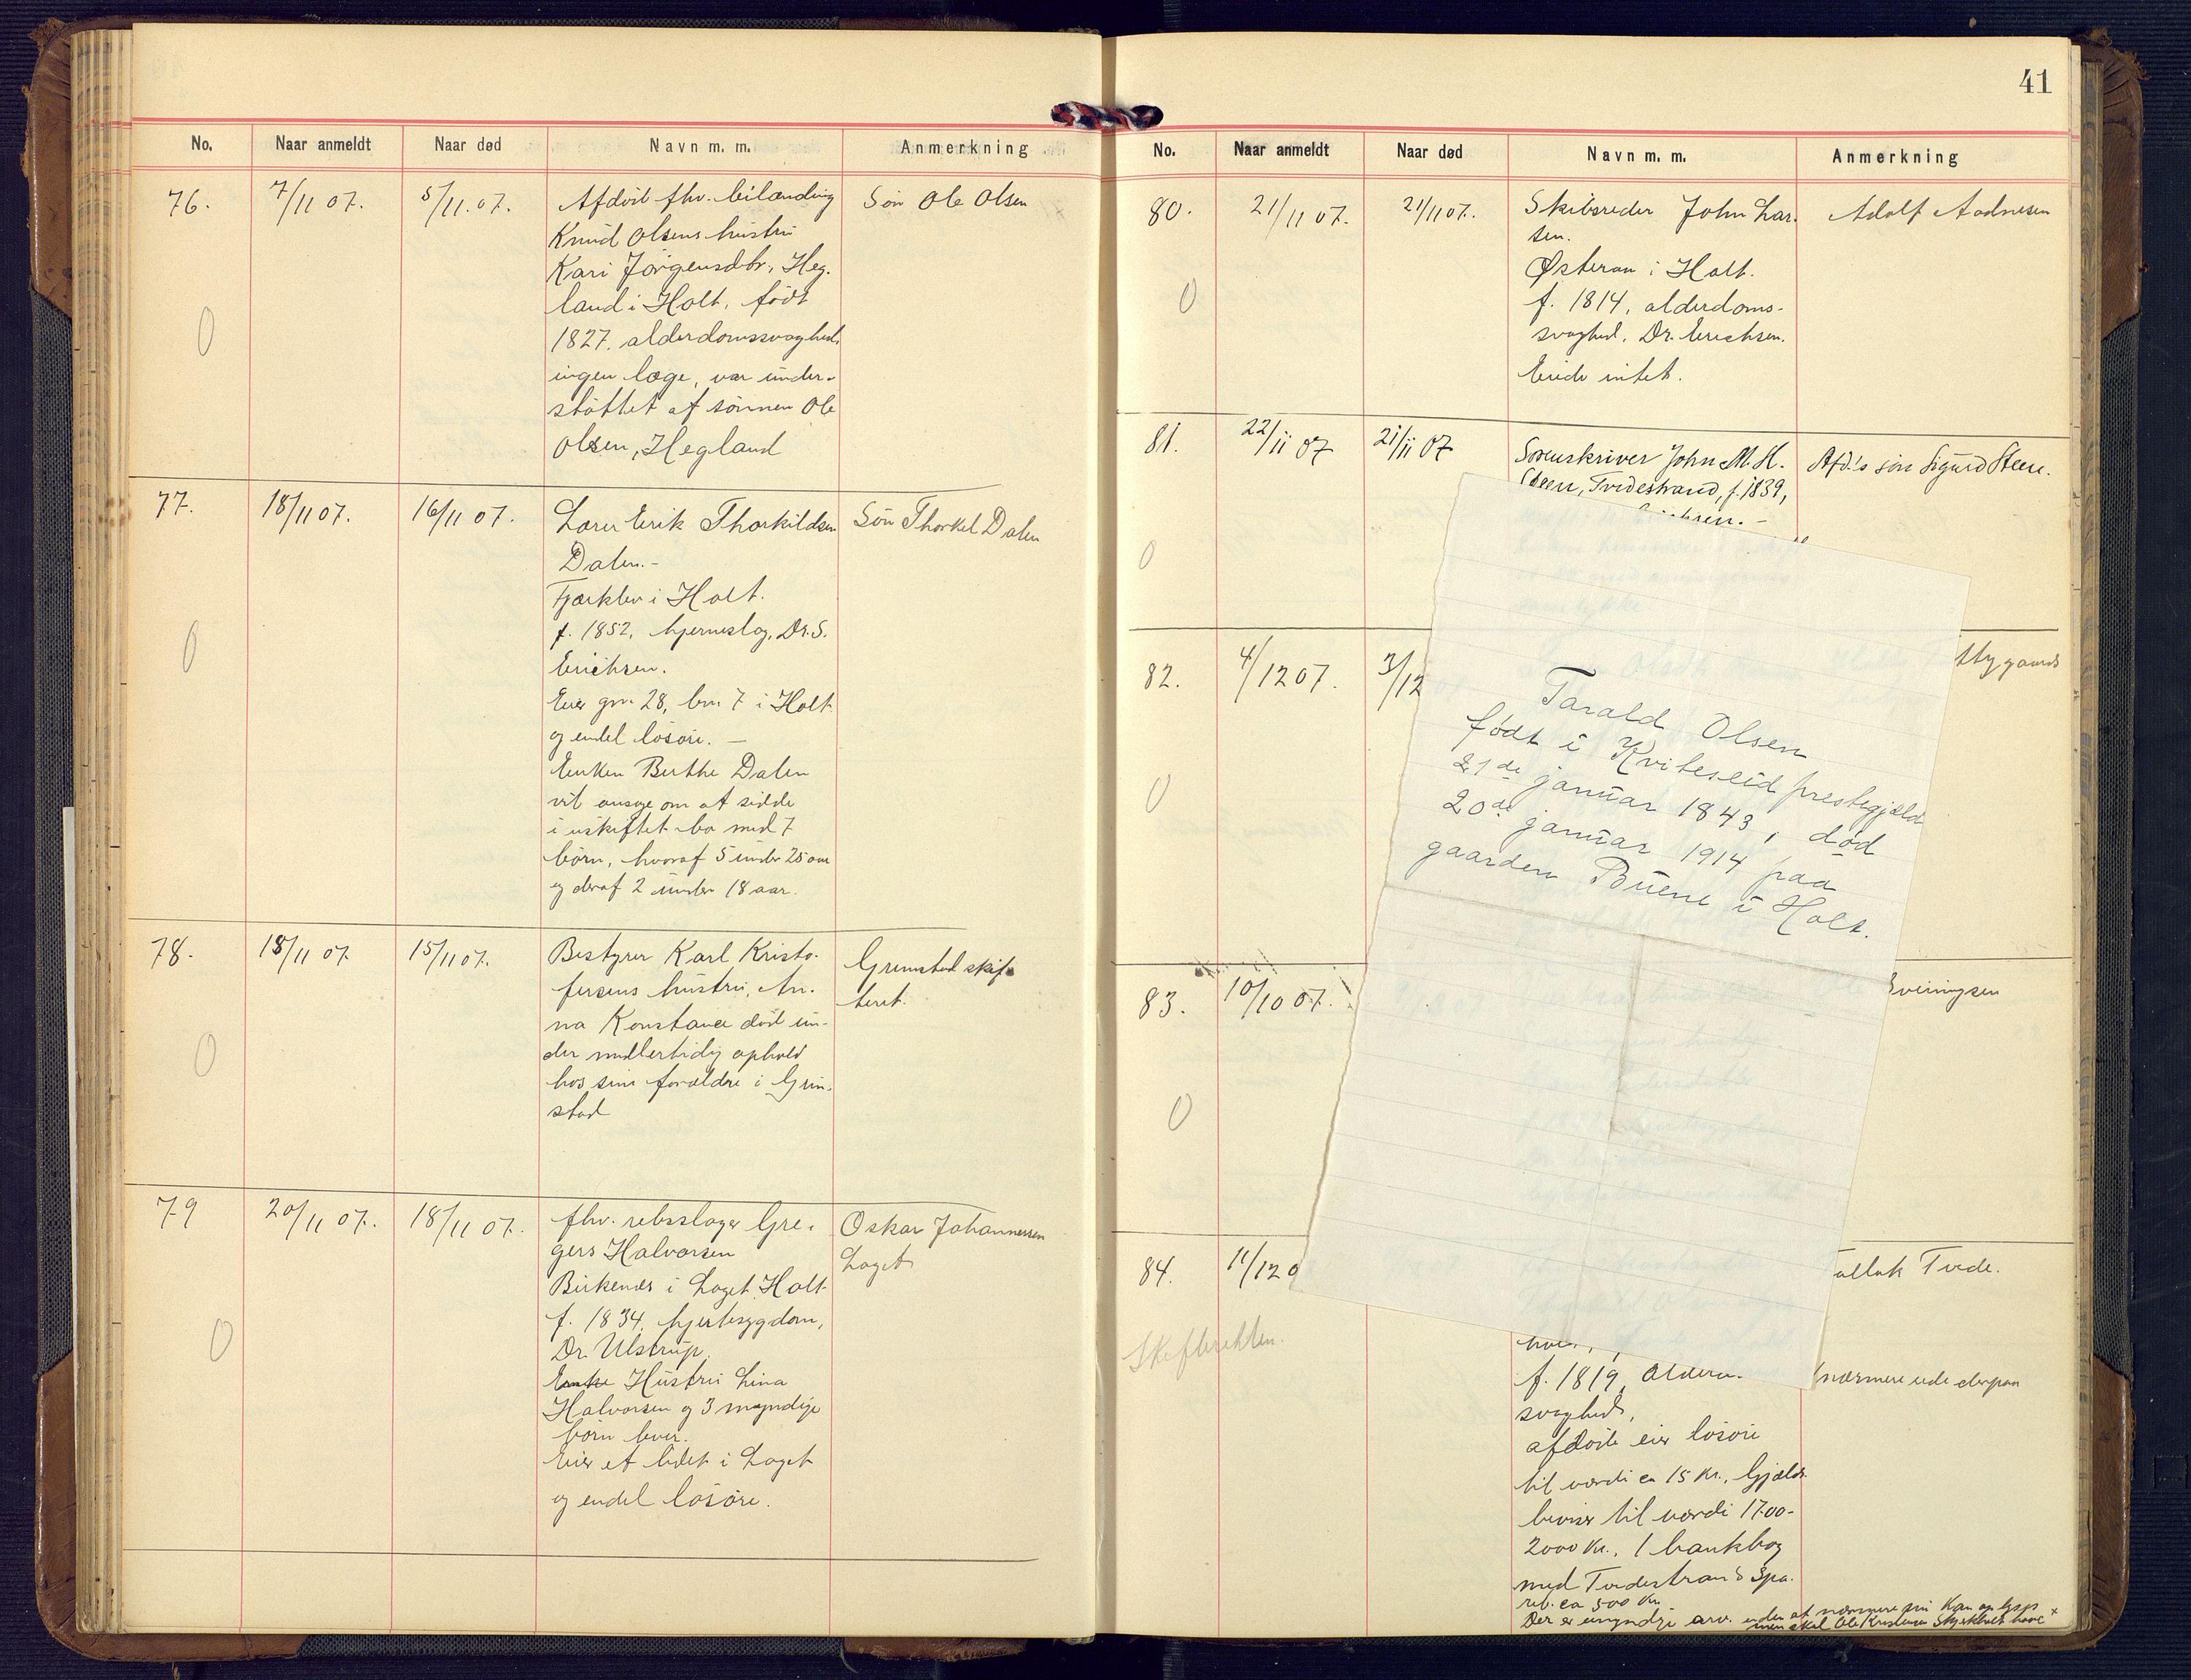 41
No.
Naar anmeldt
Naar død
Navn m. m.
Anmerkning
76.
7/11 07.
5/11.07.
Afdöd fhv. leilænding
Knud Olsens hustru
Kari Jörgensdtr, Heg-
land i Holt, födt
1827. alderdomssvaghed,
ingen læge, var under-
støttet af sønnen Ole
Olsen, Hegland
Sön Ole Olsen
0
77.
18/11 07.
16/11 07.
Lærer Erik Thorkildsen
Dalen.-
Fjærklev i Holt.
f. 1852, hjerneslag, Dr. S.
Erichsen.
Eier gn. 28, bn. 7 i Holt
og endel løsøre. -
Enken Berthe Dalen
vil ansøge om at sidde
i uskiftet bo med 7
børn, hvoraf 5 under 25 aar
og deraf 2 under 18 aar.
Sön Thorkel Dalen
0
78.
18/11 07
15/11 07.
Bestyrer Karl Kristo-
fersens hustru, An-
na Konstance död un-
der midlertidig ophold
hos sine forældre i Grim-
stad
Grimstad skif-
teret.
0
79
20/11 07.
18/11 07.
fhv. rebslager Gre-
gers Halvorsen
Birkenes i Laget Holt
f. 1834, hjertesygdom,
Dr. Ulstrup.
Enke Hustru Lina
Halvorsen og 3 myndige
børn lever.
Eier et lidet i Laget
og endel løsøre.
Oskar Johannessen
Laget
0
No.
Naar anmeldt
Naar død
Navn m. m.
Anmerkning
80.
21/11 07.
21/11 07.
Skibsreder John Lar-
sen.
Østeraa i Holt.
f. 1814, alderdoms-
svaghed, Dr. Erichsen.
Eiede intet.
Adolf Aadnesen
0
81.
22/11 07
21/11 07
Sorenskriver John M. H.
Steen, Tvedestrand, f. 1839,
Afd.'s sön Sigurd Steen.
0
82.
4/12 07.
3/12
0
83.
10/10 07.
0
84.
11/12 0
Skifteretten.
Tarald Olsen
født i Kviteseid prestegjæld
21de januar 1843, død
20de januar 1914 paa
gaarden Buene i Holt.
allak Tvede.
f. 1819, alder
svaghed,
afdöde eier løsøre
til værdi ca 15 kr., Gjælds-
beviser til værdi 1700-
2000 kr., 1 bankbog
med Tvedestrand Spa-
reb. ca 500 kr.
Der er umyndige arv. uden at nærmere kan oplyses
men skal Ole Kristensen have
nærmere rede derpaa